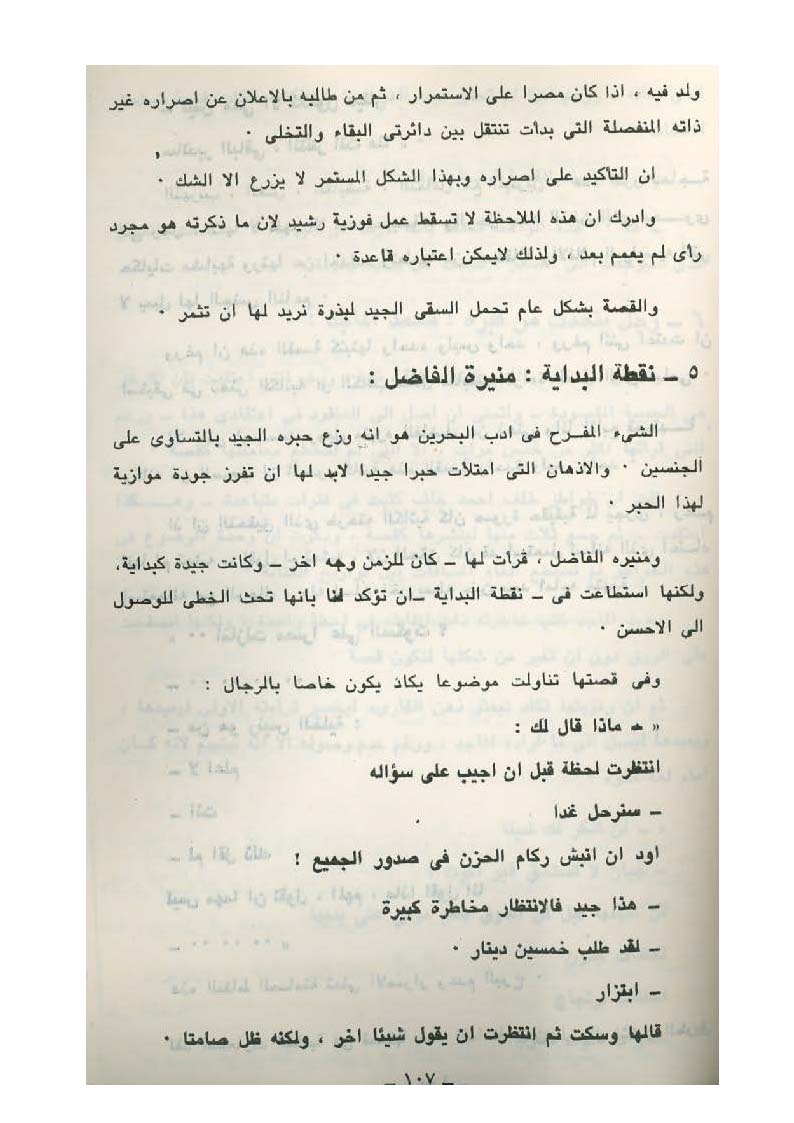 ولد فيه ، اذا كان مصرا على الاستمرار ، ثم من طالبه بالاعلان عن اصراره غير
ذاته المنفصلة التى بدأت تنتقل بين دائرتى البقاء والتخلى ٠
ان التأكيد على اصراره وبهذا الشكل المستمر لا يزرع الا الشك ٠
وادرك ان هذه الملاحظة لا تسقط عمل فوزية رشيد لان ما ذكرته هو مجرد
رأى لم يعمم بعد ، ولذلك لايمكن اعتباره قاعدة ٠
والقصة بشكل عام تحمل السقى الجيد لبذرة نريد لها ان تثمر ٠
٥ ــ نقطة البداية : منيرة الفاضل :
الشىء المفرح فى ادب البحرين هو انه وزع حبره الجيد بالتساوى على
الجنسين ٠ والاذهان التى امتلأت حبرا جيدا لابد لها ان تفرز جودة موازية
لهذا الحبر ٠
ومنيره الفاضل ، قرأت لها ــ كان للزمن وجه اخر ــ وكانت جيدة كبداية،
ولكنها استطاعت فى ــ نقطة البداية ــ ان تؤكد لنا بانها تحث الخطى للوصول
الى الاحسن ٠
وفى قصتها تناولت موضوعا يكاد يكون خاصا بالرجال :
« ــ ماذا قال لك :
انتظرت لحظة قبل ان اجيب على سؤاله
ــ سنرحل غدا
اود ان انبش ركام الحزن فى صدور الجميع !
ــ هذا جيد فالانتظار مخاطرة كبيرة
ــ لقد طلب خمسين دينار ٠
ــ ابتزار
قالها وسكت ثم انتظرت ان يقول شيئا اخر ، ولكنه ظل صامتا ٠
ــ ١٠٧ ــ